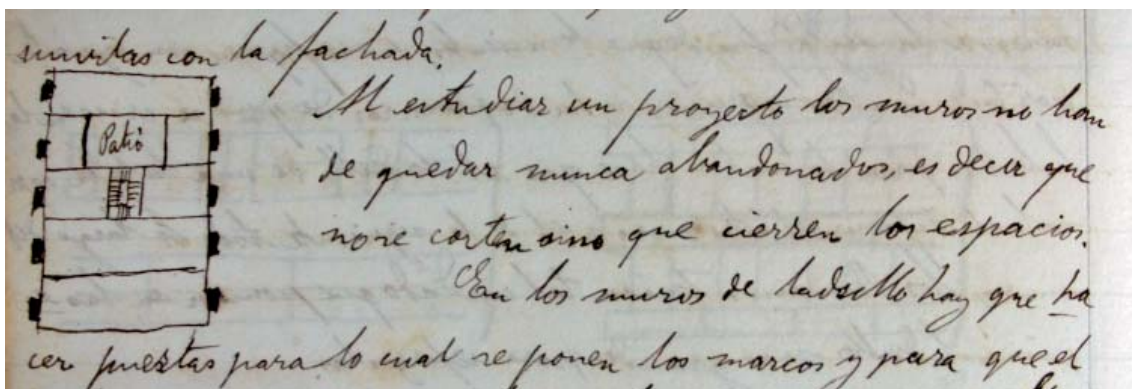 con la fachada.
Al estudiar un proyecto los muros no han
Patio
de quedar nunca abandonados, es decir que
no se corten sino que cierren los espacios.
En los muros de ladrillo hay que ha
cer puertas para lo cual se ponen los marcos y para que el